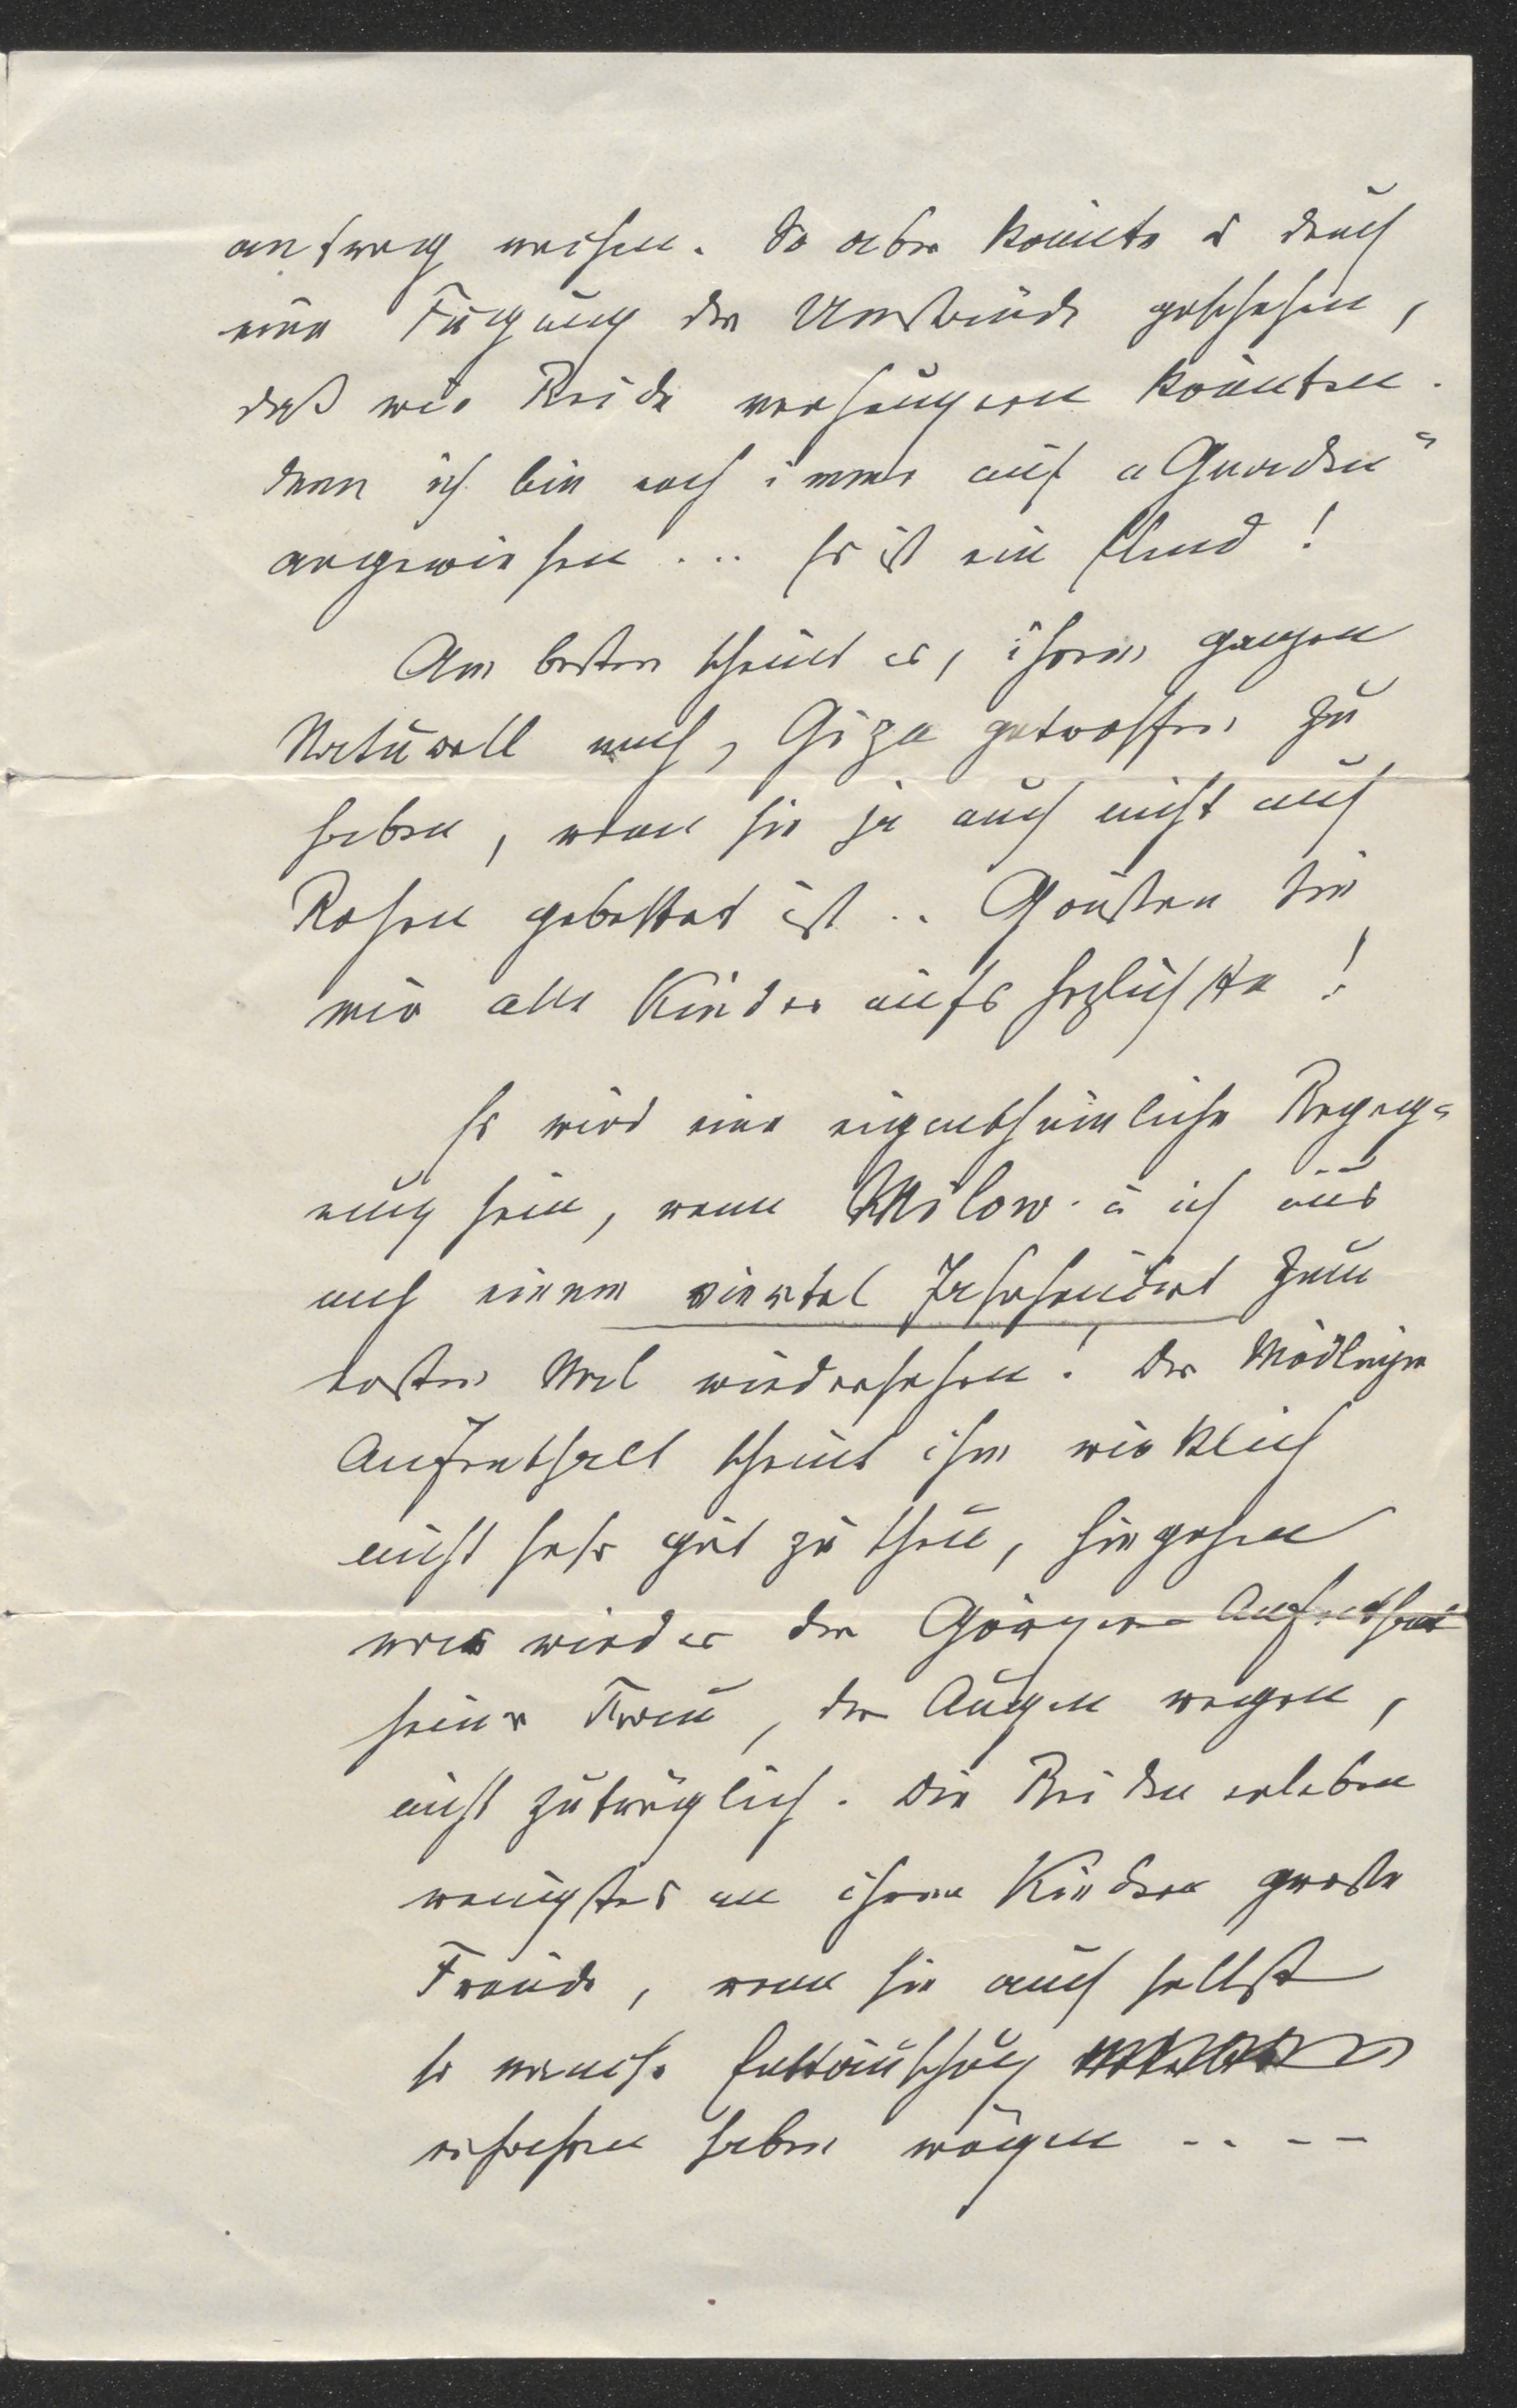 antrag weisen. So aber könnte es durch
eine Fügung der Umstände geschehen,
daß wir Beide verhungern könnten.
denn ich bin noch immer auf „Gnaden“
angewiesen ... Es ist ein Elend!
Am besten scheint es, ihrem ganzen
Naturell nach, Giza getroffen zu
haben, wenn sie ja auch nicht auf
Rosen gebettet ist .. Grüßen Sie
mir alle Kinder aufs herzlichste!
Es wird eine eigenthümliche Begeg=
nung sein, wenn Milow u ich uns
nach einem viertel Jahrhundert zum
ersten Mal wiedersehen! Der Mödlinger
Aufenthalt scheint ihm wirklich
nicht sehr gut zu thun, hingegen
war wieder der Görzer Aufenthalt
seiner Frau, der Augen wegen,
nicht zuträglich. Die Beiden erleben
wenigstens an ihren Kindern große
Freude, wenn sie auch selbst
so manche Enttäuschung
erfahren haben mögen - - - -